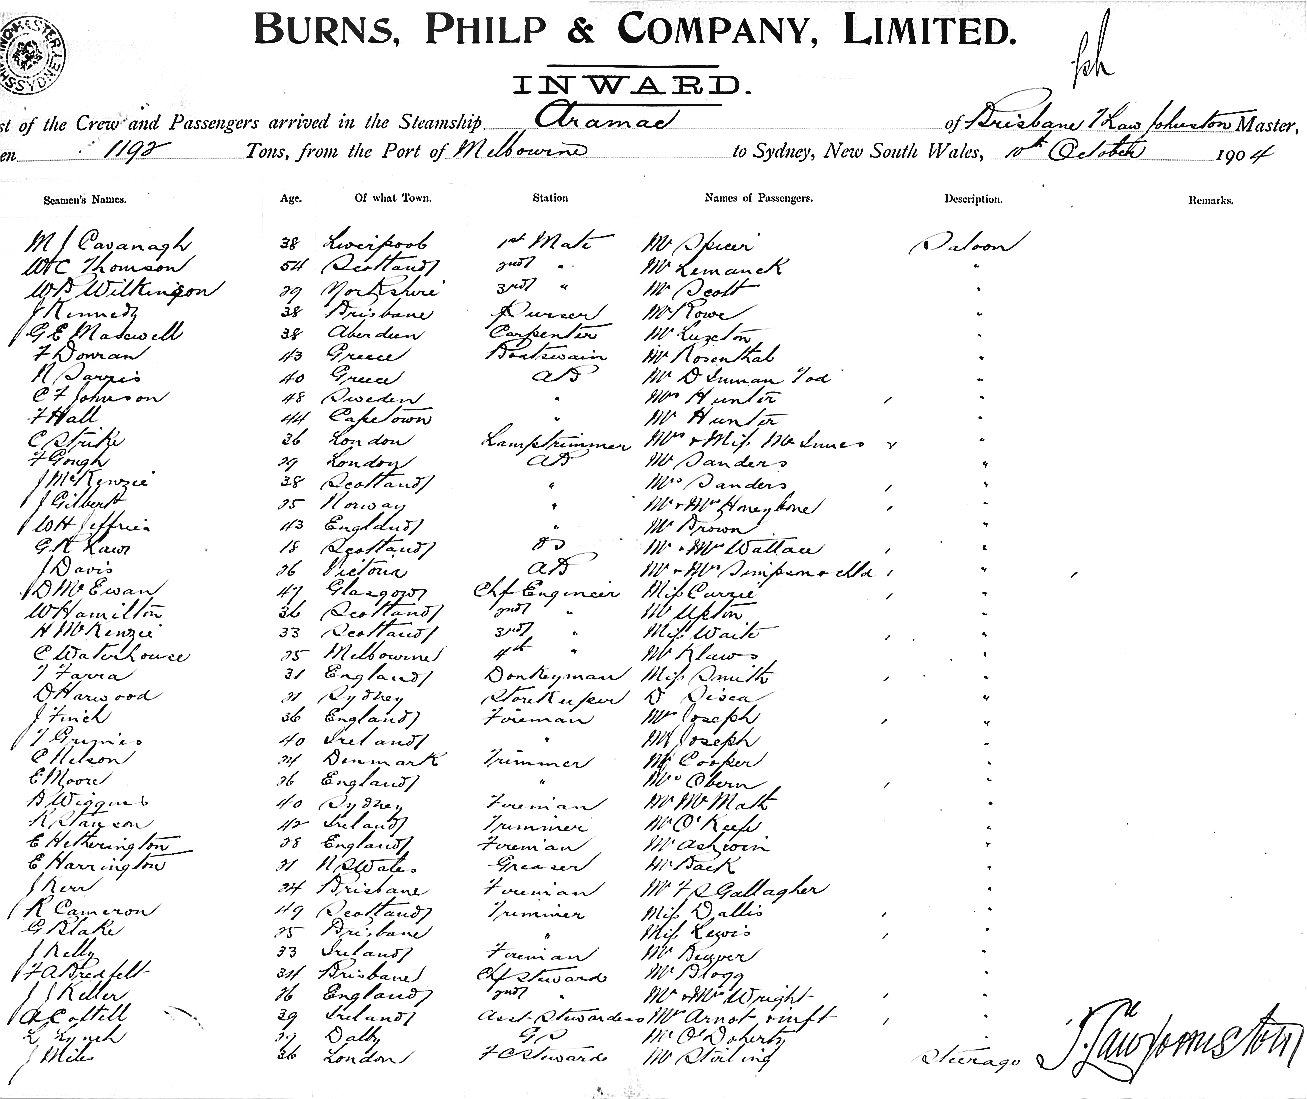 BURNS, PHILP & COMPANY, LIMITED.
INWARD.
st of the Crew and Passengers arrived in the Steamship Aramac of Brisbane T Law Johnston Master,
en 1192 Tons, from the Port of Melbourne to Sydney, New South Wales, 10th October 1904
Seamen's Names. Age. Of what Town. Station Names of Passengers. Description. Remarks.
M J Cavanagh 38 Liverpool 1st Mate Mr Spicer Saloon
W C Thomson 54 Scotland 2nd " Mr Lemanck "
W B Wilkinson 29 Yorkshire 3rd " Mr Scott "
J Kennedy 38 Brisbane Purser Mr Rowe "
G E Maxwell 38 Aberdeen Carpenter Mr Luxton "
F Dowran 43 Greece Boatswain Mr Rosenthal "
N Sarris 40 Greece AB Mr D Suman Tod "
C F Johnson 48 Sweden " Mrs Hunter "
F Hall 44 Capetown " Mr Hunter "
C Strike 36 London Lamptrimmer Mrs & Miss McInnes "
F Gough 29 London AB Mr Sanders "
J McKenzie 38 Scotland " Mrs Sanders "
J Gilbert 25 Norway " Mr & Mrs Honeybone "
W H Jeffries 43 England " Mr Brown "
G R Law 18 Scotland OS Mr & Mrs Wallace "
J Davis 26 Victoria AB Mr & Mrs Simpson & chld "
D McEwan 47 Glasgow Chf Engineer Miss Currie "
W Hamilton 36 Scotland 2nd " Mr Upton "
H McKenzie 33 Scotland 3rd " Miss Waite "
C Waterhouse 25 Melbourne 4th " Mr Klaws "
T Farra 31 England Donkeyman Miss Smith "
D Harwood 21 Sydney Storekeeper D Sisca "
J Finch 36 England Foreman Mrs Joseph "
T 40 Ireland " Mr Joseph "
C Nelson 24 Denmark Trimmer Mr Cooper "
E Moore 26 England " Mrs Obern "
B Wiggins 40 Sydney Foreman Mr McMath "
R Stauson 42 Ireland Trimmer Mr O'Keefe "
E Hetherington 28 England Foreman Mr Ashwin "
E Harrington 21 N S Wales Greaser Mr Back "
J Kerr 24 Brisbane Foreman Mr F S Gallagher "
R Cameron 49 Scotland Trimmer Miss Dallis "
G Blake 25 Brisbane " Miss Lewis "
J Kelly 33 Ireland Foreman Mr Beaver "
F A Bredfelt 34 Brisbane Chf Steward Mr Blogg "
J J Keller 26 England 2nd " Mr & Mrs Wright "
A Cottell 39 Ireland Asst Stewardess Mrs Arnot & inft "
L Lynch 27 Dalby GS Mr O'Doherty "
J Miles 26 London F C Steward Mr Stirling Steerage T. Law Johnston